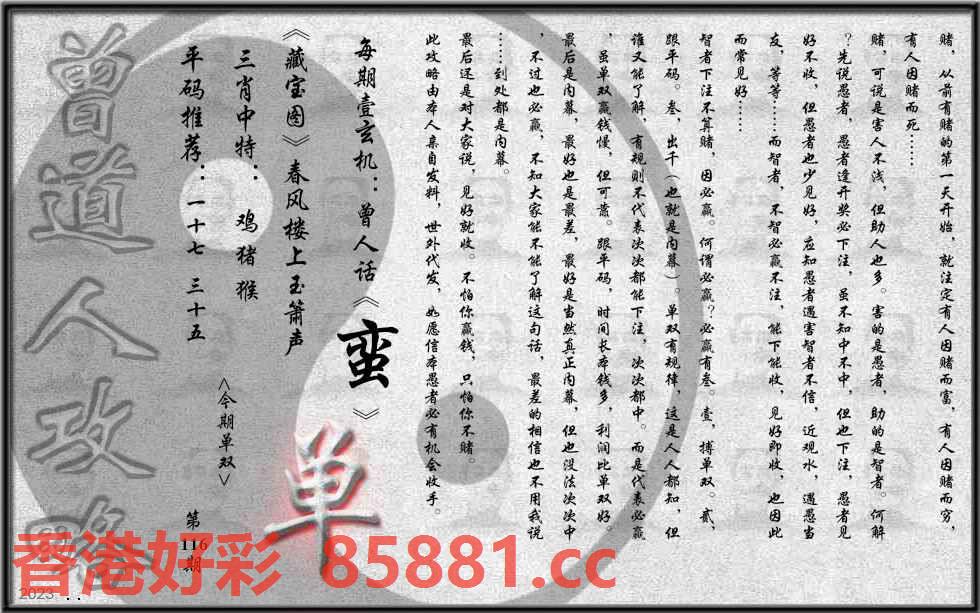 赌，从前有赌的第一天开始，就注定有人因赌而富，有人因赌而穷，
有人因赌而死……
赌，可说是害人不浅，但助人也多。害的是愚者，助的是智者。何解
？先说愚者，愚者逢开奖必下注，虽不知中不中，但也下注，愚者见
好不收，但愚者也少见好，应知愚者遇害智者不信，近观水，遇愚当
友，等等……而智者，不智必赢不注，能下能收，见好即收，也因此
而常见好……
智者下注不算赌，因必赢。何谓必赢？必赢有叁。壹，搏单双。贰，
跟平码。叁，出千（也就是内幕）。单双有规律，这是人人都知，但
谁又能了解，有规则不代表次次都能下注，次次都中。而是代表必赢
，虽单双赢钱慢，但可靠。跟平码，时间长本钱多，利润比单双好。
最后是内幕，最好也是最差，最好是当然真正内幕，但也没法次次中
，不过也必赢，不知大家能不能了解这句话，最差的相信也不用我说
……到处都是内幕。
最后还是对大家说，见好就收。不怕你赢钱，只怕你不赌。
此攻略由本人亲自发料，世外代发，如愿信本愚者必有机会收手。
每期壹玄机：曾人话《蛮》
《藏宝图》春风楼上玉箫声
三肖中特：鸡猪猴
平码推荐：一十七 三十五
<今期单双>
单
第116期
曾道人攻略
香港好彩 85881.cc
2023